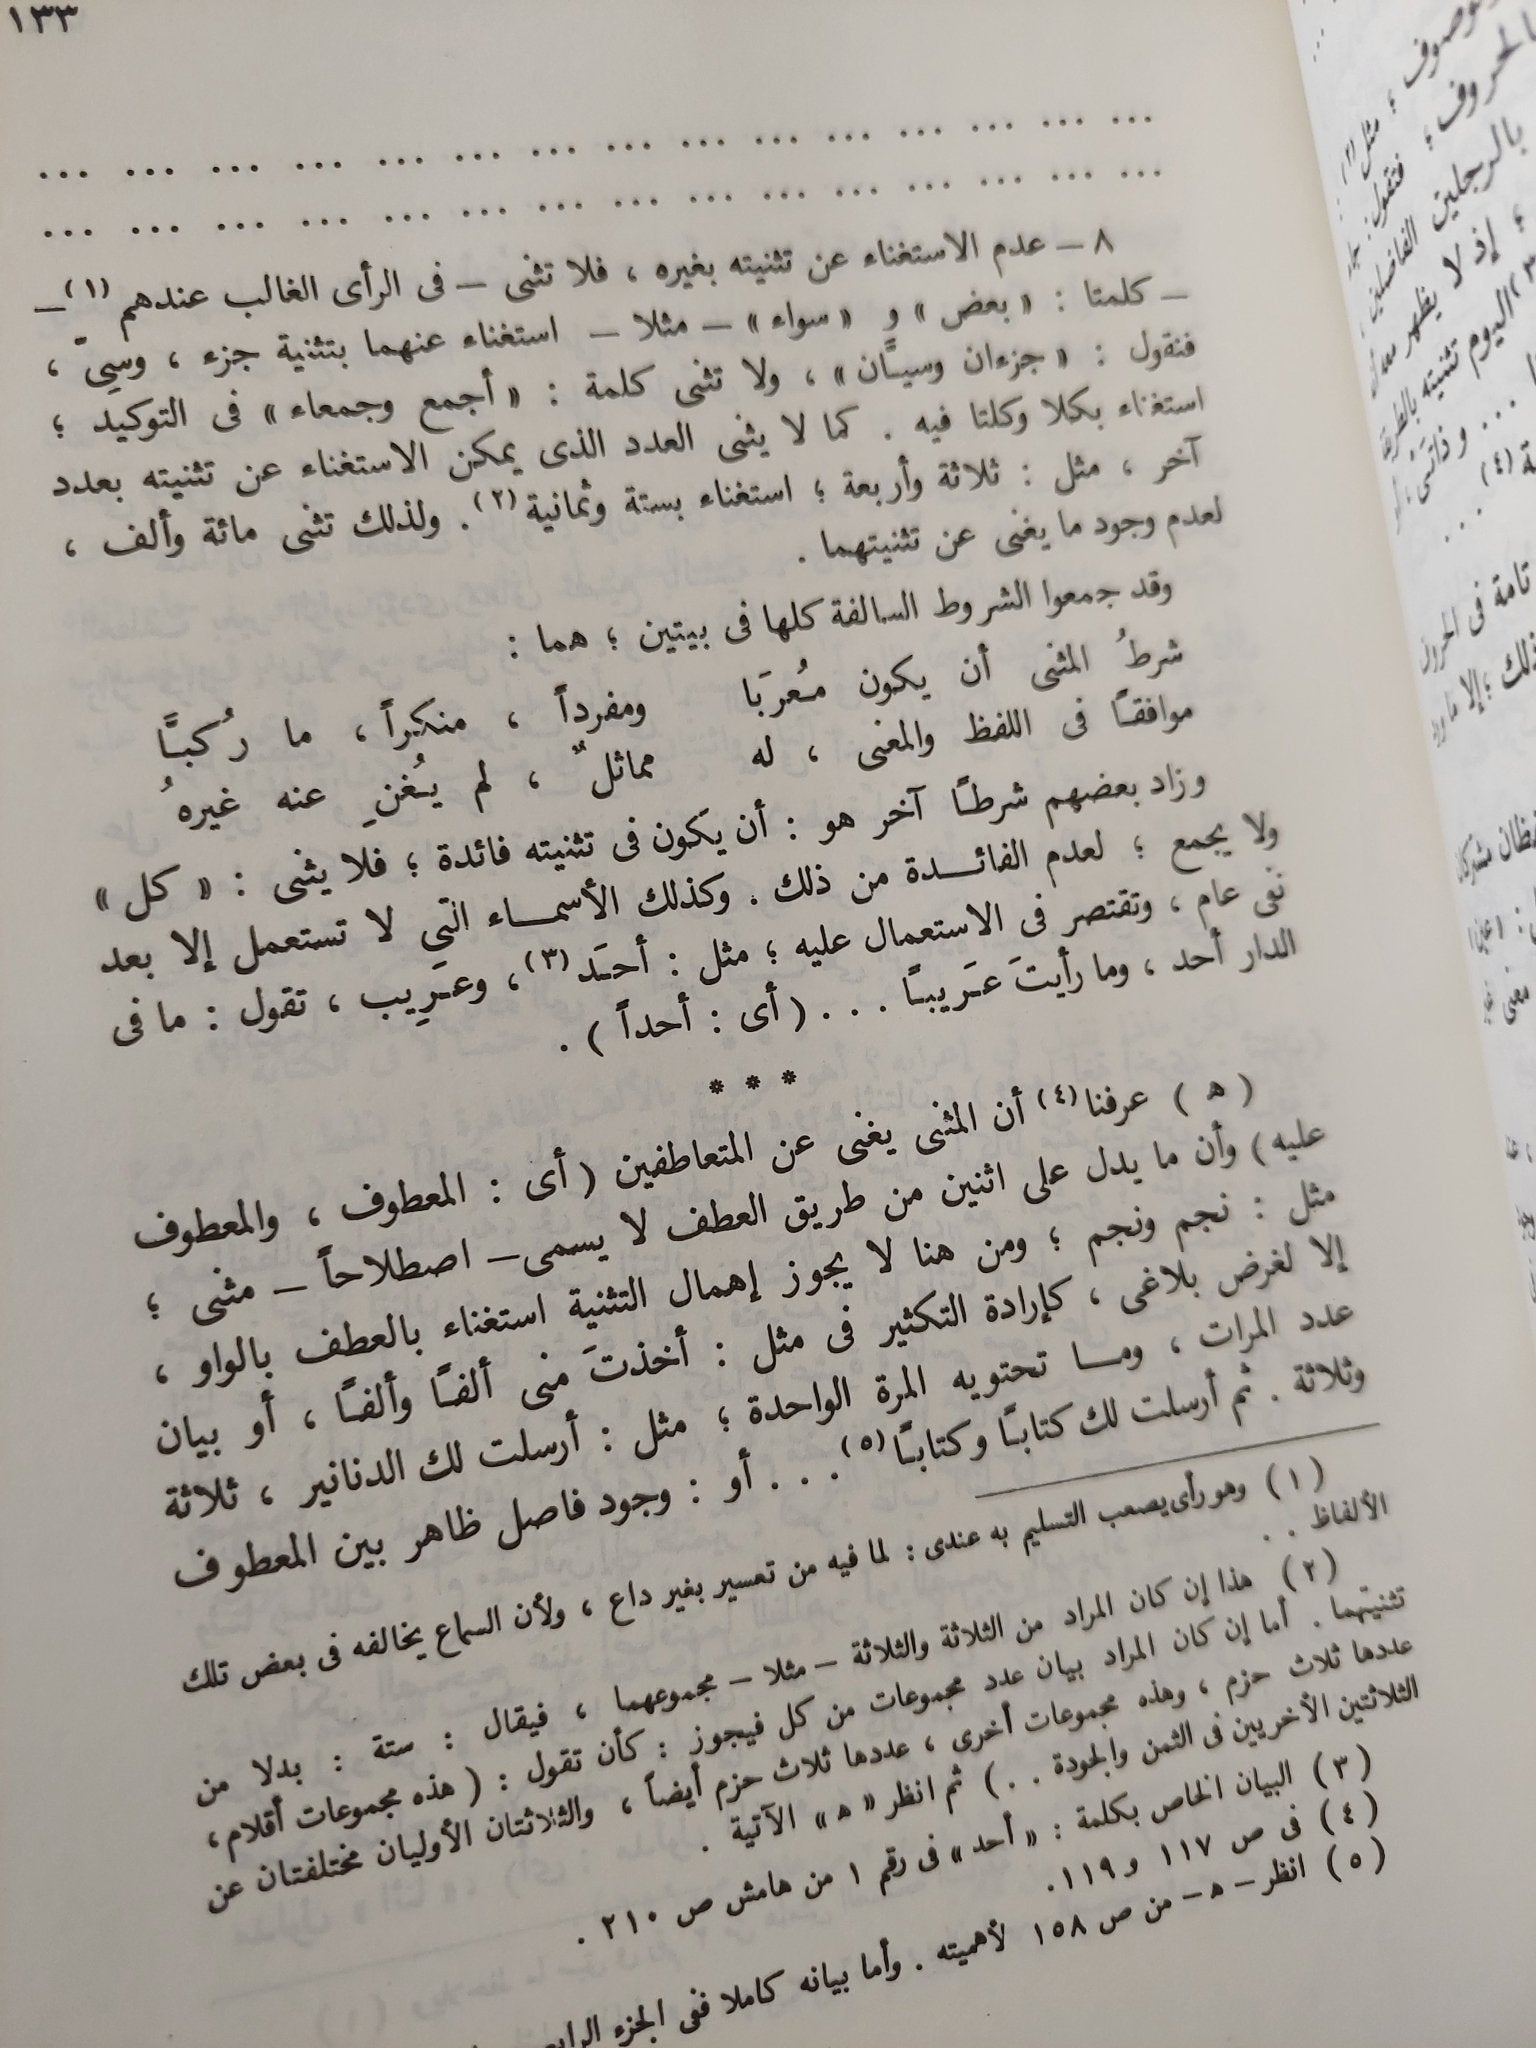 ١٣٣
... ... ... ... ... ... ... ... ... ... ... ... ... ...
... ... ... ... ... ... ... ... ... ... ... ... ... ...
٨ – عدم الاستغناء عن تثنيته بغيره ، فلا تثنى – فى الرأى الغالب عندهم (١) –
– كلمتا : « بعض » و « سواء » – مثلا – استغناء عنهما بتثنية جزء ، وسِىّ ،
فنقول : « جزءان وسيـَّان » ، ولا تثنى كلمة : « أجمع وجمعاء » فى التوكيد ؛
استغناء بكلا وكلتا فيه . كما لا يثنى العدد الذى يمكن الاستغناء عن تثنيته بعدد
آخر ، مثل : ثلاثة وأربعة ؛ استغناء بستة وثمانية (٢) . ولذلك تثنى مائة وألف ،
لعدم وجود ما يغنى عن تثنيتهما .
وقد جمعوا الشروط السالفة كلها فى بيتين ؛ هما :
شرطُ المثنى أن يكون مـُعرَبا ومفرداً ، منكراً ، ما رُكبـَّا
موافقـًا فى اللفظ والمعنى ، له مماثلٌ ، لم يـُغنِ عنه غيرهُ
وزاد بعضهم شرطـًا آخر هو : أن يكون فى تثنيته فائدة ؛ فلا يثنى : « كل »
ولا يجمع ؛ لعدم الفائـــدة من ذلك . وكذلك الأسمـــاء التى لا تستعمل إلا بعد
نفى عام ، وتقتصر فى الاستعمال عليه ؛ مثل : أحـَد (٣) ، وعـَرِيب ، تقول : ما فى
الدار أحد ، وما رأيتَ عـَريبـًا . . . ( أى : أحداً ) .
* * *
( ه ) عرفنا (٤) أن المثنى يغنى عن المتعاطفين ( أى : المعطوف ، والمعطوف
عليه ) وأن ما يدل على اثنين من طريق العطف لا يسمى – اصطلاحاً – مثنى ؛
مثل : نجم ونجم ؛ ومن هنا لا يجوز إهمال التثنية استغناء بالعطف بالواو ،
إلا لغرض بلاغى ، كإرادة التكثير فى مثل : أخذتَ منى ألفـًا وألفـًا ، أو بيان
عدد المرات ، ومــا تحتويه المرة الواحدة ؛ مثل : أرسلت لك الدنانير ، ثلاثة
وثلاثة . ثم أرسلت لك كتابـًا وكتابـًا (٥) . . . أو : وجود فاصل ظاهر بين المعطوف
(١) وهو رأى يصعب التسليم به عندى : لما فيه من تعسير بغير داع ، ولأن السماع يخالفه فى بعض تلك
الألفاظ . .
(٢) هذا إن كان المراد من الثلاثة والثلاثة – مثلا – مجموعهما ، فيقال : ستة : بدلا من
تثنيتهما . أما إن كان المراد بيان عدد مجموعات من كل فيجوز : كأن تقول : ( هذه مجموعات أقلام ،
عددها ثلاث حزم ، وهذه مجموعات أخرى ، عددها ثلاث حزم أيضاً ، والثلاثتان الأوليان مختلفتان عن
الثلاثتين الأخريين فى الثمن والجودة . . ) ثم انظر « ه » الآتية .
(٣) البيان الخاص بكلمة : « أحد » فى رقم ١ من هامش ص ٢١٠ .
(٤) فى ص ١١٧ و ١١٩ .
(٥) انظر – ه – من ص ١٥٨ لأهميته . وأما بيانه كاملا ففى الجزء الرابع